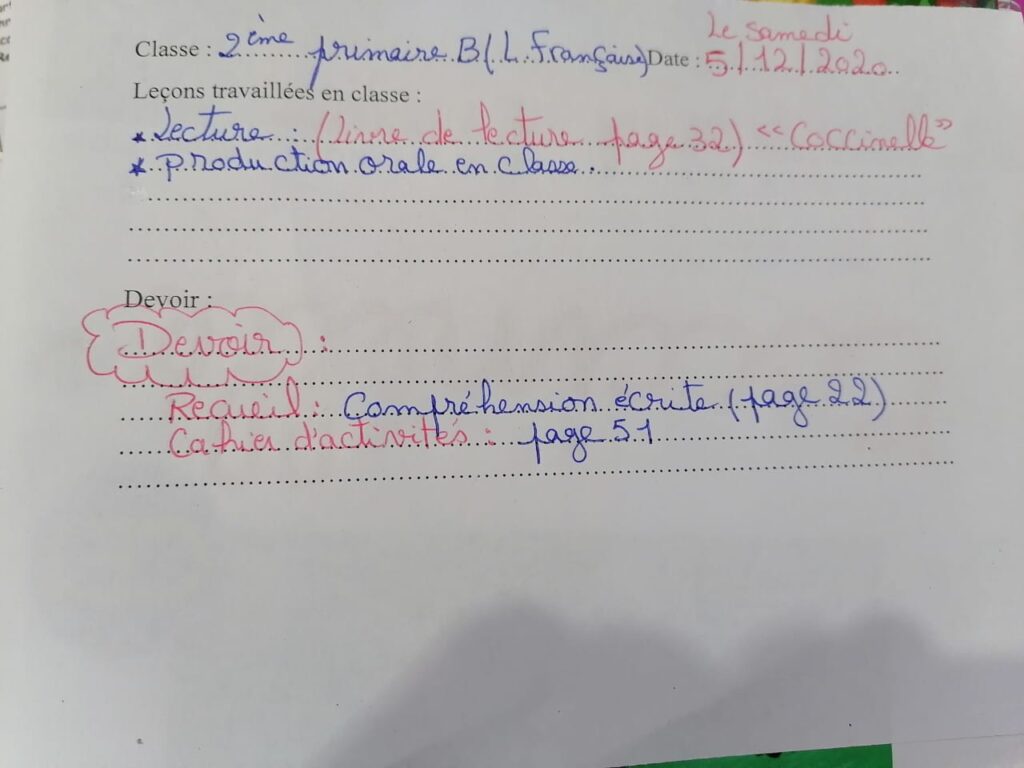 Le samedi
Classe : 2ème primaire B (L. Française) Date : 5/12/2020
Leçons travaillées en classe :
* Lecture : (livre de lecture page 32) « Coccinelle »
* production orale en classe.
Devoir :
Devoir :
Recueil : Compréhension écrite (page 22)
Cahier d'activités : page 51